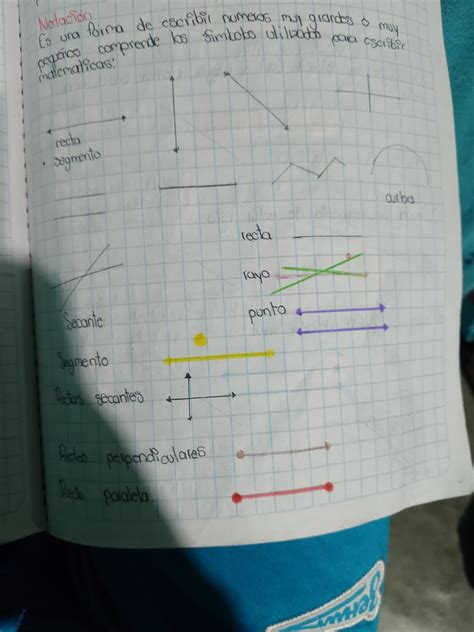 Notación
Es una forma de escribir numeros muy grandes o muy
pequños comprende los simbolos utilizados para escribir
matematicas:
recta
• segmento
curba
recta
rayo
Secante
punto
Segmento
Rectas secantes
Rectas perpendiculares
Recta paralela